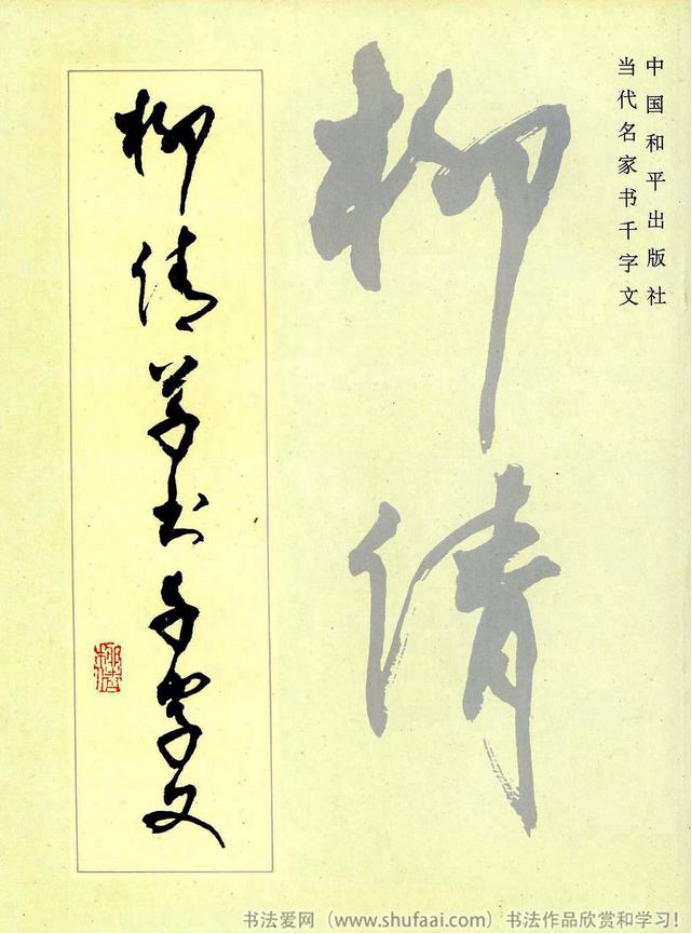 中国和平出版社
当代名家书千字文
柳倩
柳倩草书千字文
书法爱网（www.shufaai.com）书法作品欣赏和学习！